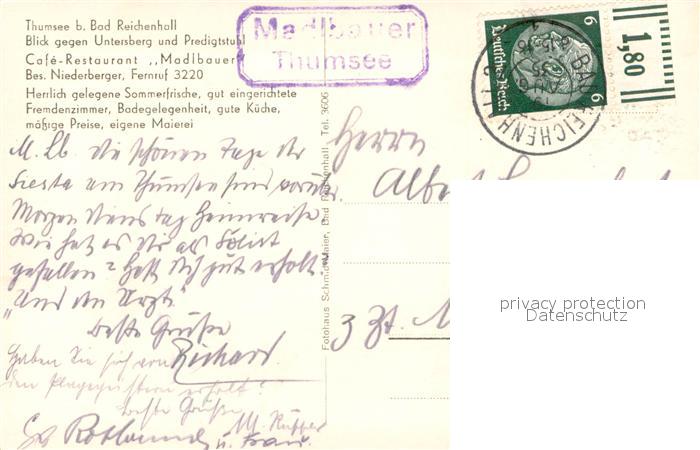 Thumsee b. Bad Reichenhall
Blick gegen Untersberg und Predigtstuhl
Café-Restaurant ,,Madlbauer
Bes. Niederberger, Fernruf 3220
Herrlich gelegene Sommerfrische, gut eingerichtete
Fremdenzimmer, Badegelegenheit, gute Küche,
mäßige Preise, eigene Maierei
Madlbauer
Thumsee
Deutsches Reich
6
6
1,80
BAD REICHENHALL
M. Lb. die schönen Tage der
Siesta am Thumsee sind vorüber.
Morgen Dienstag Heimreise
Wie hat es dir als Solist
gefallen? Hast dich gut erholt.
"Und der Arzt"
Beste Grüße
Richard
Haben Sie sich von
den Plagegeistern erholt?
Beste Grüße
M. Küpper
u. Frau.
Fotohaus Schmid-Maier, Bad Reichenhall Tel. 3606
Herrn
z Zt.
privacy protection
Datenschutz